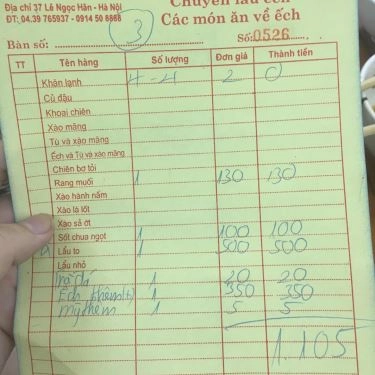 Địa chỉ 37 Lê Ngọc Hân - Hà Nội
ĐT: 04.39 765937 - 0914 50 8668
Chuyên lẩu ếch
Các món ăn về ếch
Bàn số: 3 Số: 0526
TT Tên hàng Số lượng Đơn giá Thành tiền
Khăn lạnh 4 - 4 2 0
Củ đậu
Khoai chiên
Xào măng
Tủ và xào măng
Ếch và Tủ và xào măng
Chiên bơ tỏi
Rang muối 1 130 130
Xào hành nấm
Xào lá lốt
Xào sả ớt
Sốt chua ngọt 1 100 100
Lẩu to 1 500 500
Lẩu nhỏ
Trà đá 1 20 20
Ếch thêm 1 350 350
mỳ thêm 1 5 5
1.105